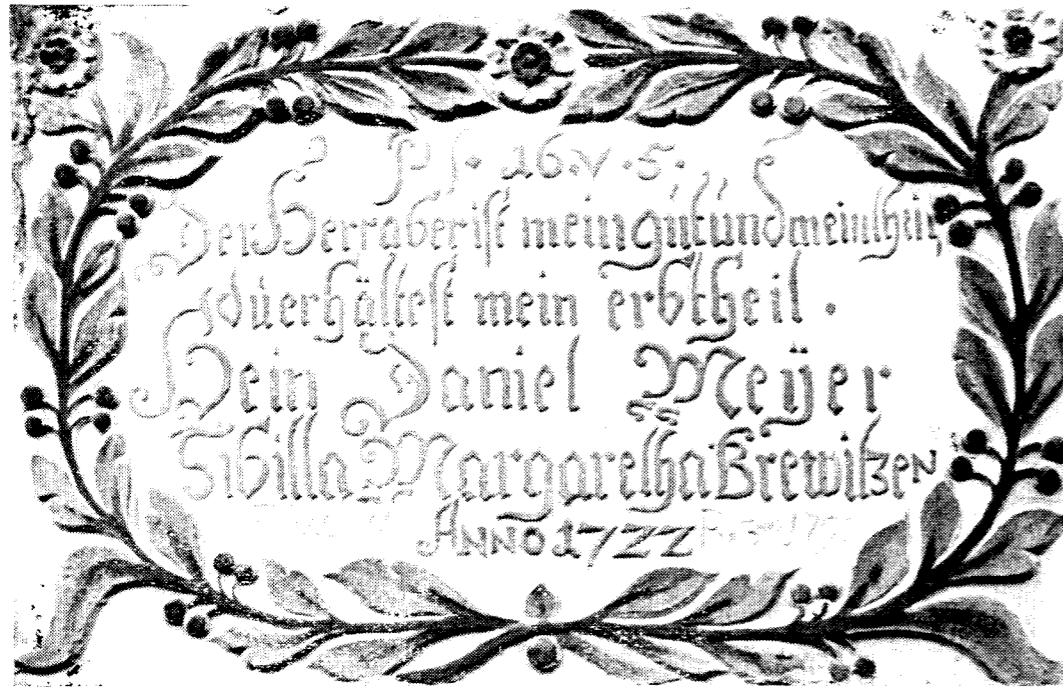 Ps. 16.v.5.
Der Herr aber ist mein gút únd mein theil,
dú erhältest mein erbtheil.
Hein Daniel Meÿer
Sibilla Margaretha Brewitzen
ANNO 1722